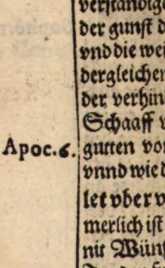 verständige
der gunst d
vnd die wei
dergleichen
der verhin
Schaaff v
Apoc. 6. gutten vo
vnnd wie d
let vber v
merlich ist
nit Wün